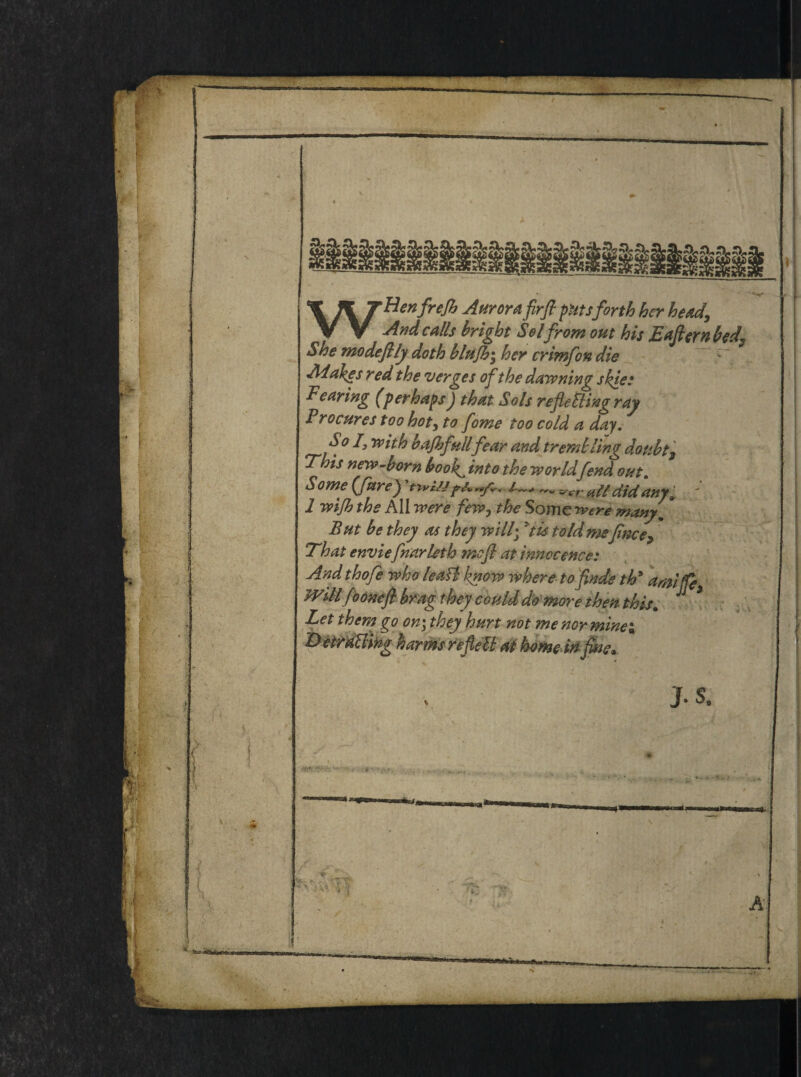 WHen freſh Aurora firſt puts forth her head,
And calls bright Sol from out his Eaſtern bed,
She modeſtly doth bluſh; her crimſon die
Makes red the verges of the dawning skie:
Fearing (perhaps) that Sols reflecting ray
Procures too hot, to ſome too cold a day.
So I, with baſhfull fear and trembling doubt,
This new-born book into the world ſend out.
Some (ſure) 'twill all did any.
I wiſh the All were few, the Some were many.
But be they as they will; 'tis told me ſince,
That envie ſnarleth moſt at innocence:
And thoſe who leaſt know where to finde th' amiſſe,
Will ſooneſt brag they could do more then this.
Let them go on; they hurt not me nor mine:
Detracting harms reflect at home in fine.
J. S.
A